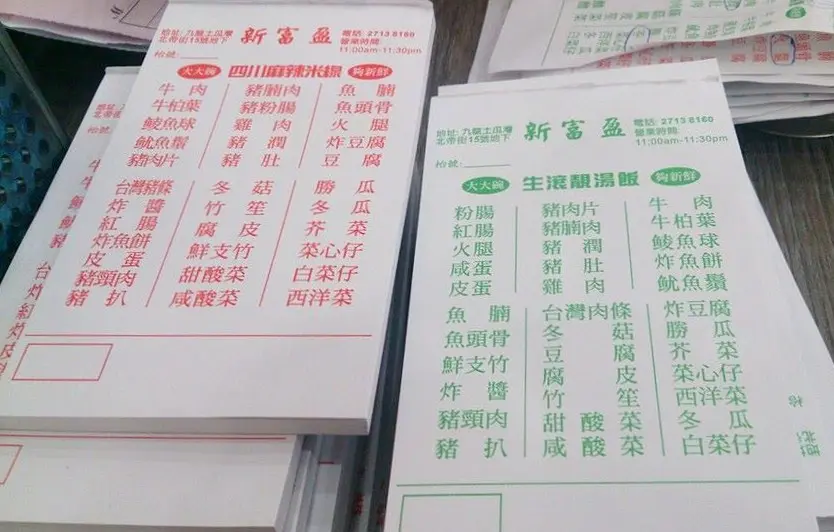 地址: 九龍土瓜灣
北帝街15號地下
新富盈
電話: 2713 8160
營業時間:
11:00am-11:30pm
枱號:
大大碗 四川麻辣米線 夠新鮮
牛肉 豬腩肉 魚腩
牛柏葉 豬粉腸 魚頭骨
鯪魚球 雞肉 火腿
魷魚鬚 豬潤 炸豆腐
豬肉片 豬肚 豆腐
台灣豬條 冬菇 勝瓜
炸醬 竹笙 冬瓜
紅腸 腐皮 芥菜
炸魚餅 鮮支竹 菜心仔
皮蛋 甜酸菜 白菜仔
豬頸肉 咸酸菜 西洋菜
豬扒
地址: 九龍土瓜灣
北帝街15號地下
新富盈
電話: 2713 8160
營業時間:
11:00am-11:30pm
枱號:
大大碗 生滾靚湯飯 夠新鮮
粉腸 豬肉片 牛肉
紅腸 豬腩肉 牛柏葉
火腿 豬潤 鯪魚球
咸蛋 豬肚 炸魚餅
皮蛋 雞肉 魷魚鬚
魚腩 台灣肉條 炸豆腐
魚頭骨 冬菇 勝瓜
鮮支竹 豆腐 芥菜
炸醬 腐皮 菜心仔
豬頸肉 竹笙 西洋菜
豬扒 甜酸菜 冬瓜
咸酸菜 白菜仔